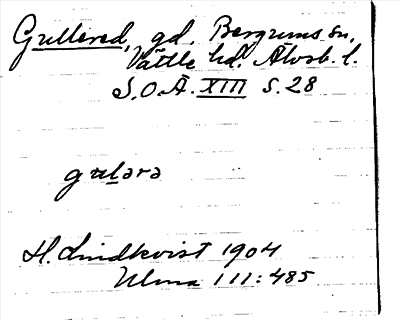 Gullered, gd. Bergums sn,
Vättle hd. Älvsb. l.
S.O.Ä. XIII s. 28
gulərə
H. Lindkvist 1904
Ulma 111:485